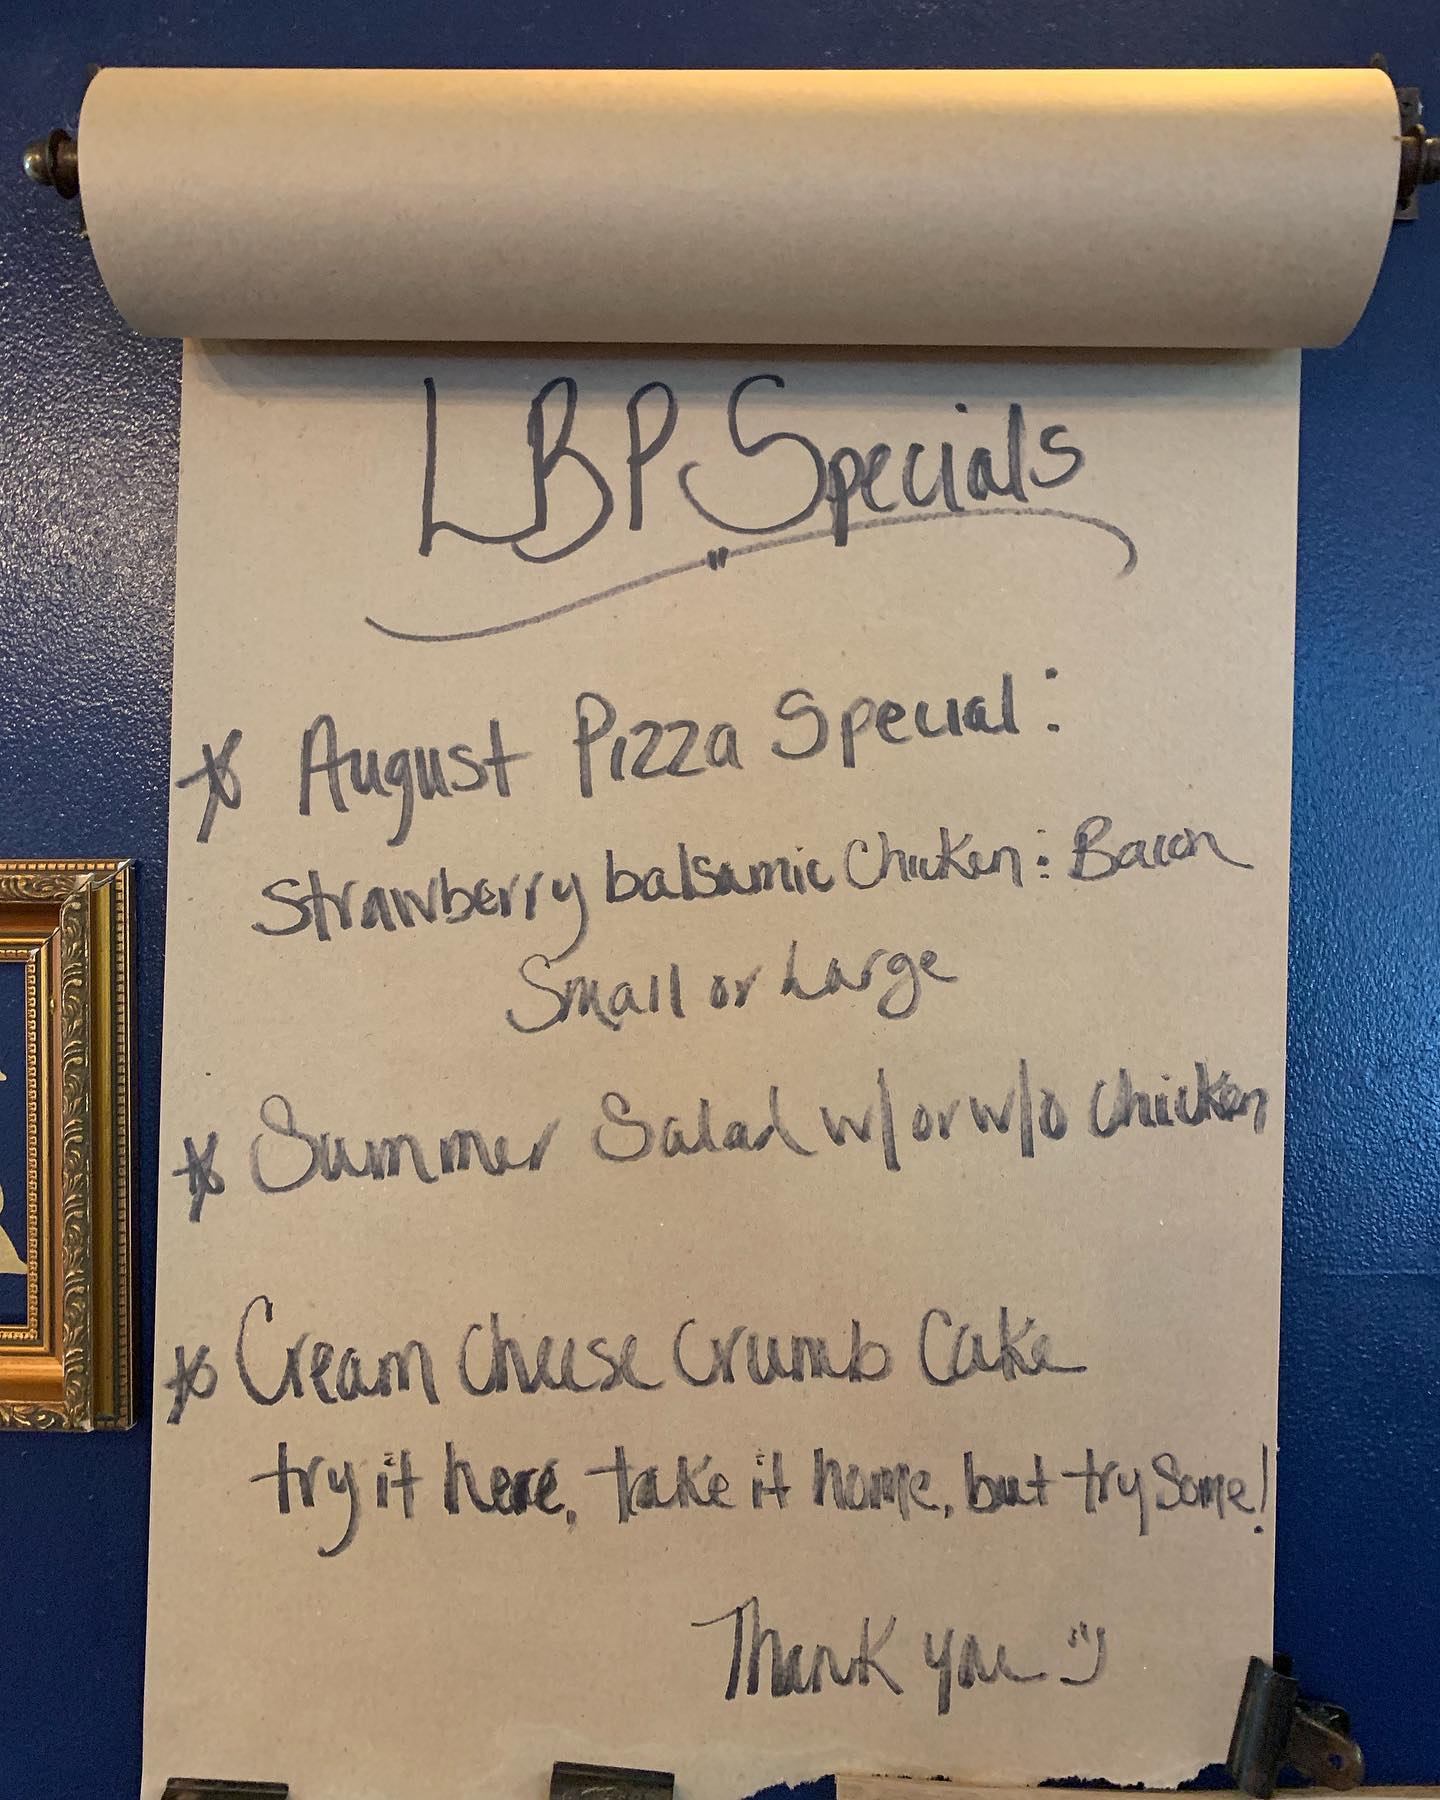 LBP Specials
* August Pizza Special:
Strawberry balsamic Chicken : Bacon
Small or Large
* Summer Salad w/ or w/o Chicken
* Cream Cheese Crumb Cake
try it here, take it home, but try Some!
Thank you :)